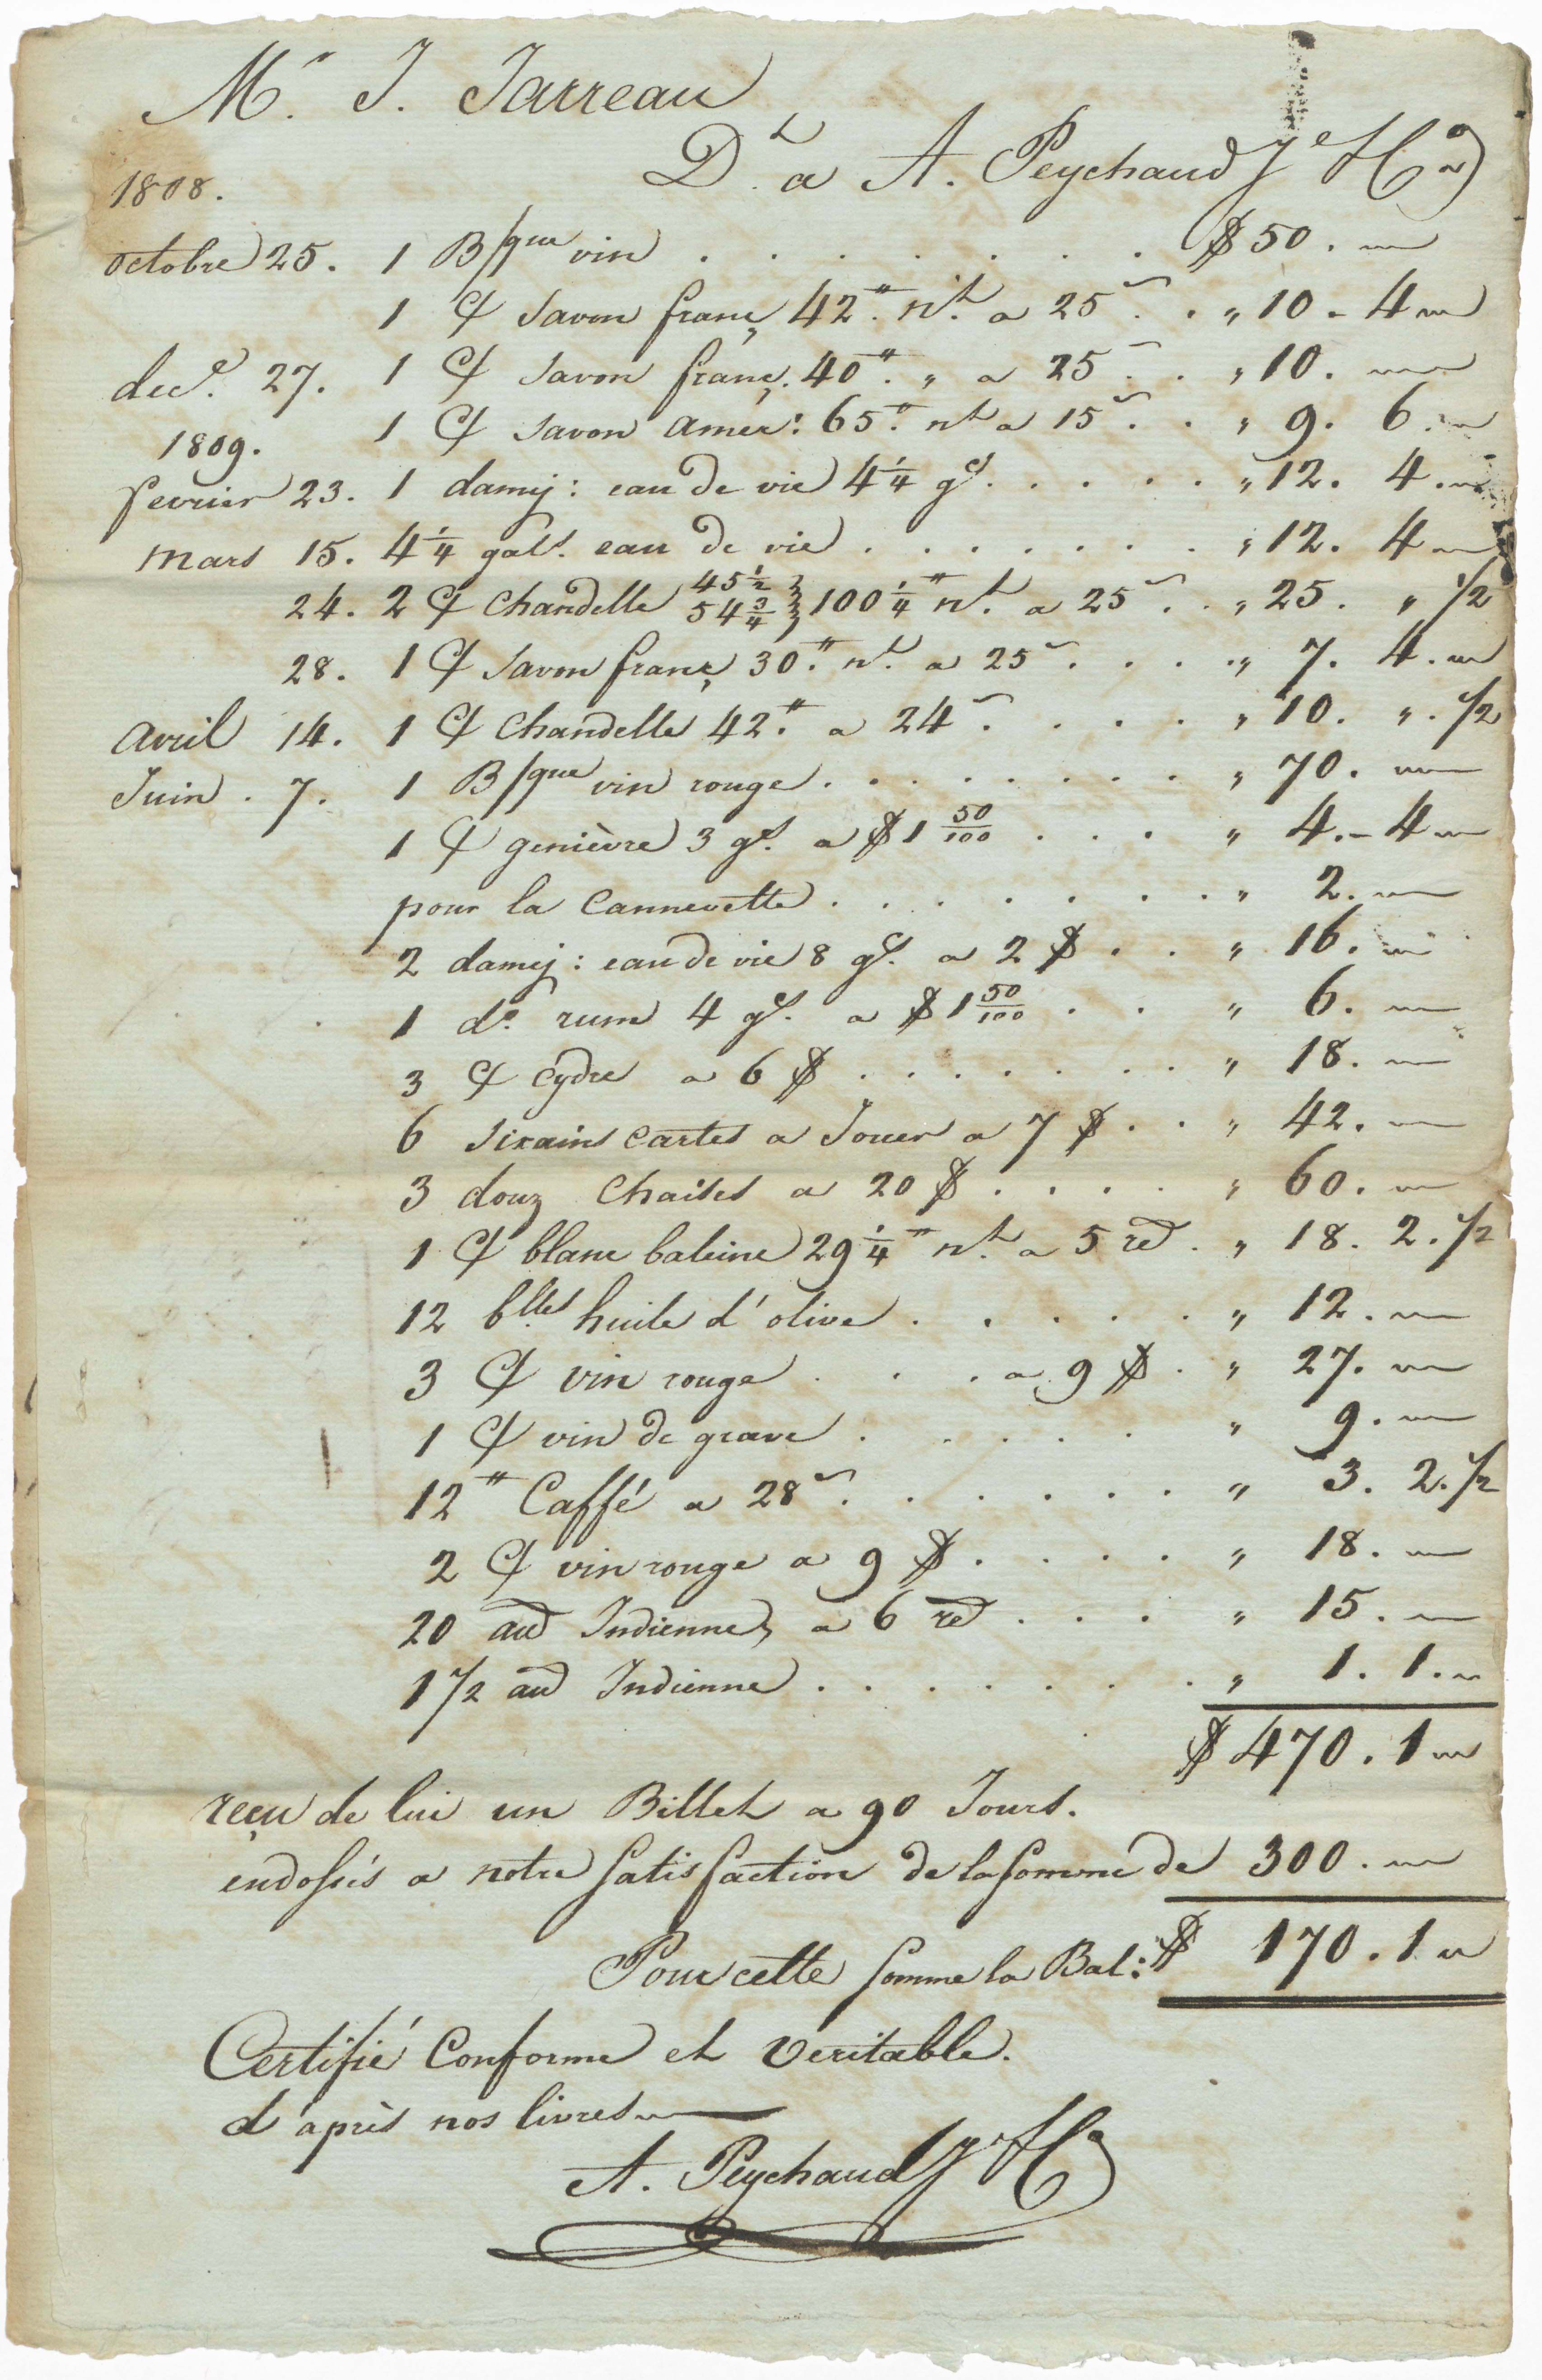 Mr. J. Jarreau
Dt. a A. Peychaud
1808.
octobre 25. 1 B/que vin . . . . . . . $ 50. "
1 C/ Savon franç, 42 #. nt. a 25 . . " 10 - 4 "
dece. 27. 1 C/ Savon franç. 40 #. " a 25 . . " 10. "
1809. 1 C/ Savon amér: 65 #. nt a 15 . . " 9. 6. "
fevrier 23. 1 damej: eau de vie 4 1/4 gs. . . . . . " 12. 4. "
Mars 15. 4 1/4 gals. eau de vie . . . . . . . " 12. 4 "
24. 2 C/ Chandelle 45 1/2 54 3/4 } 100 1/4 # nt. a 25 . . " 25. " 1/2
28. 1 C/ Savon franç, 30 #. nt. a 25 . . . . " 7. 4. "
Avril 14. 1 C/ Chandelle 42 #. a 24 . . . . " 10. ". 1/2
Juin . 7. 1 B/que vin rouge . . . . . . . " 70. "
1 C/ genièvre 3 gs. a $ 1 50/100 . . . " 4. - 4 "
pour la Cannevette . . . . . . . " 2. "
2 damej: eau de vie 8 gs. a 2 $ . . " 16. "
1 do. rum 4 gs. a $ 1 50/100 . . " 6. "
3 C/ Cydre a 6 $ . . . . . . . " 18. "
6 Sixains Cartes a Jouer a 7 $ . . " 42. "
3 douz Chaises a 20 $ . . . . " 60. "
1 C/ blanc baleine 29 1/4 # nt. a 5 rs . " 18. 2. 1/2
12 blles huile d'olive . . . . . " 12. "
3 C/ vin rouge . . . a 9 $ . " 27. "
1 C/ vin de grave . . . . . " 9. "
12 # Caffé a 28 . . . . . . . " 3. 2. 1/2
2 C/ vin rouge a 9 $ . . . . " 18. "
20 aus Indienne, a 6 rs . . . " 15. "
1 1/2 aus Indienne . . . . . . . " 1. 1. "
$ 470. 1 "
reçu de lui un Billet a 90 Jours.
endossés a notre satisfaction de la somme de 300. "
Pour cette somme la Bal: $ 170. 1 "
Certifié Conforme et veritable.
d'après nos livres
A. Peychaud